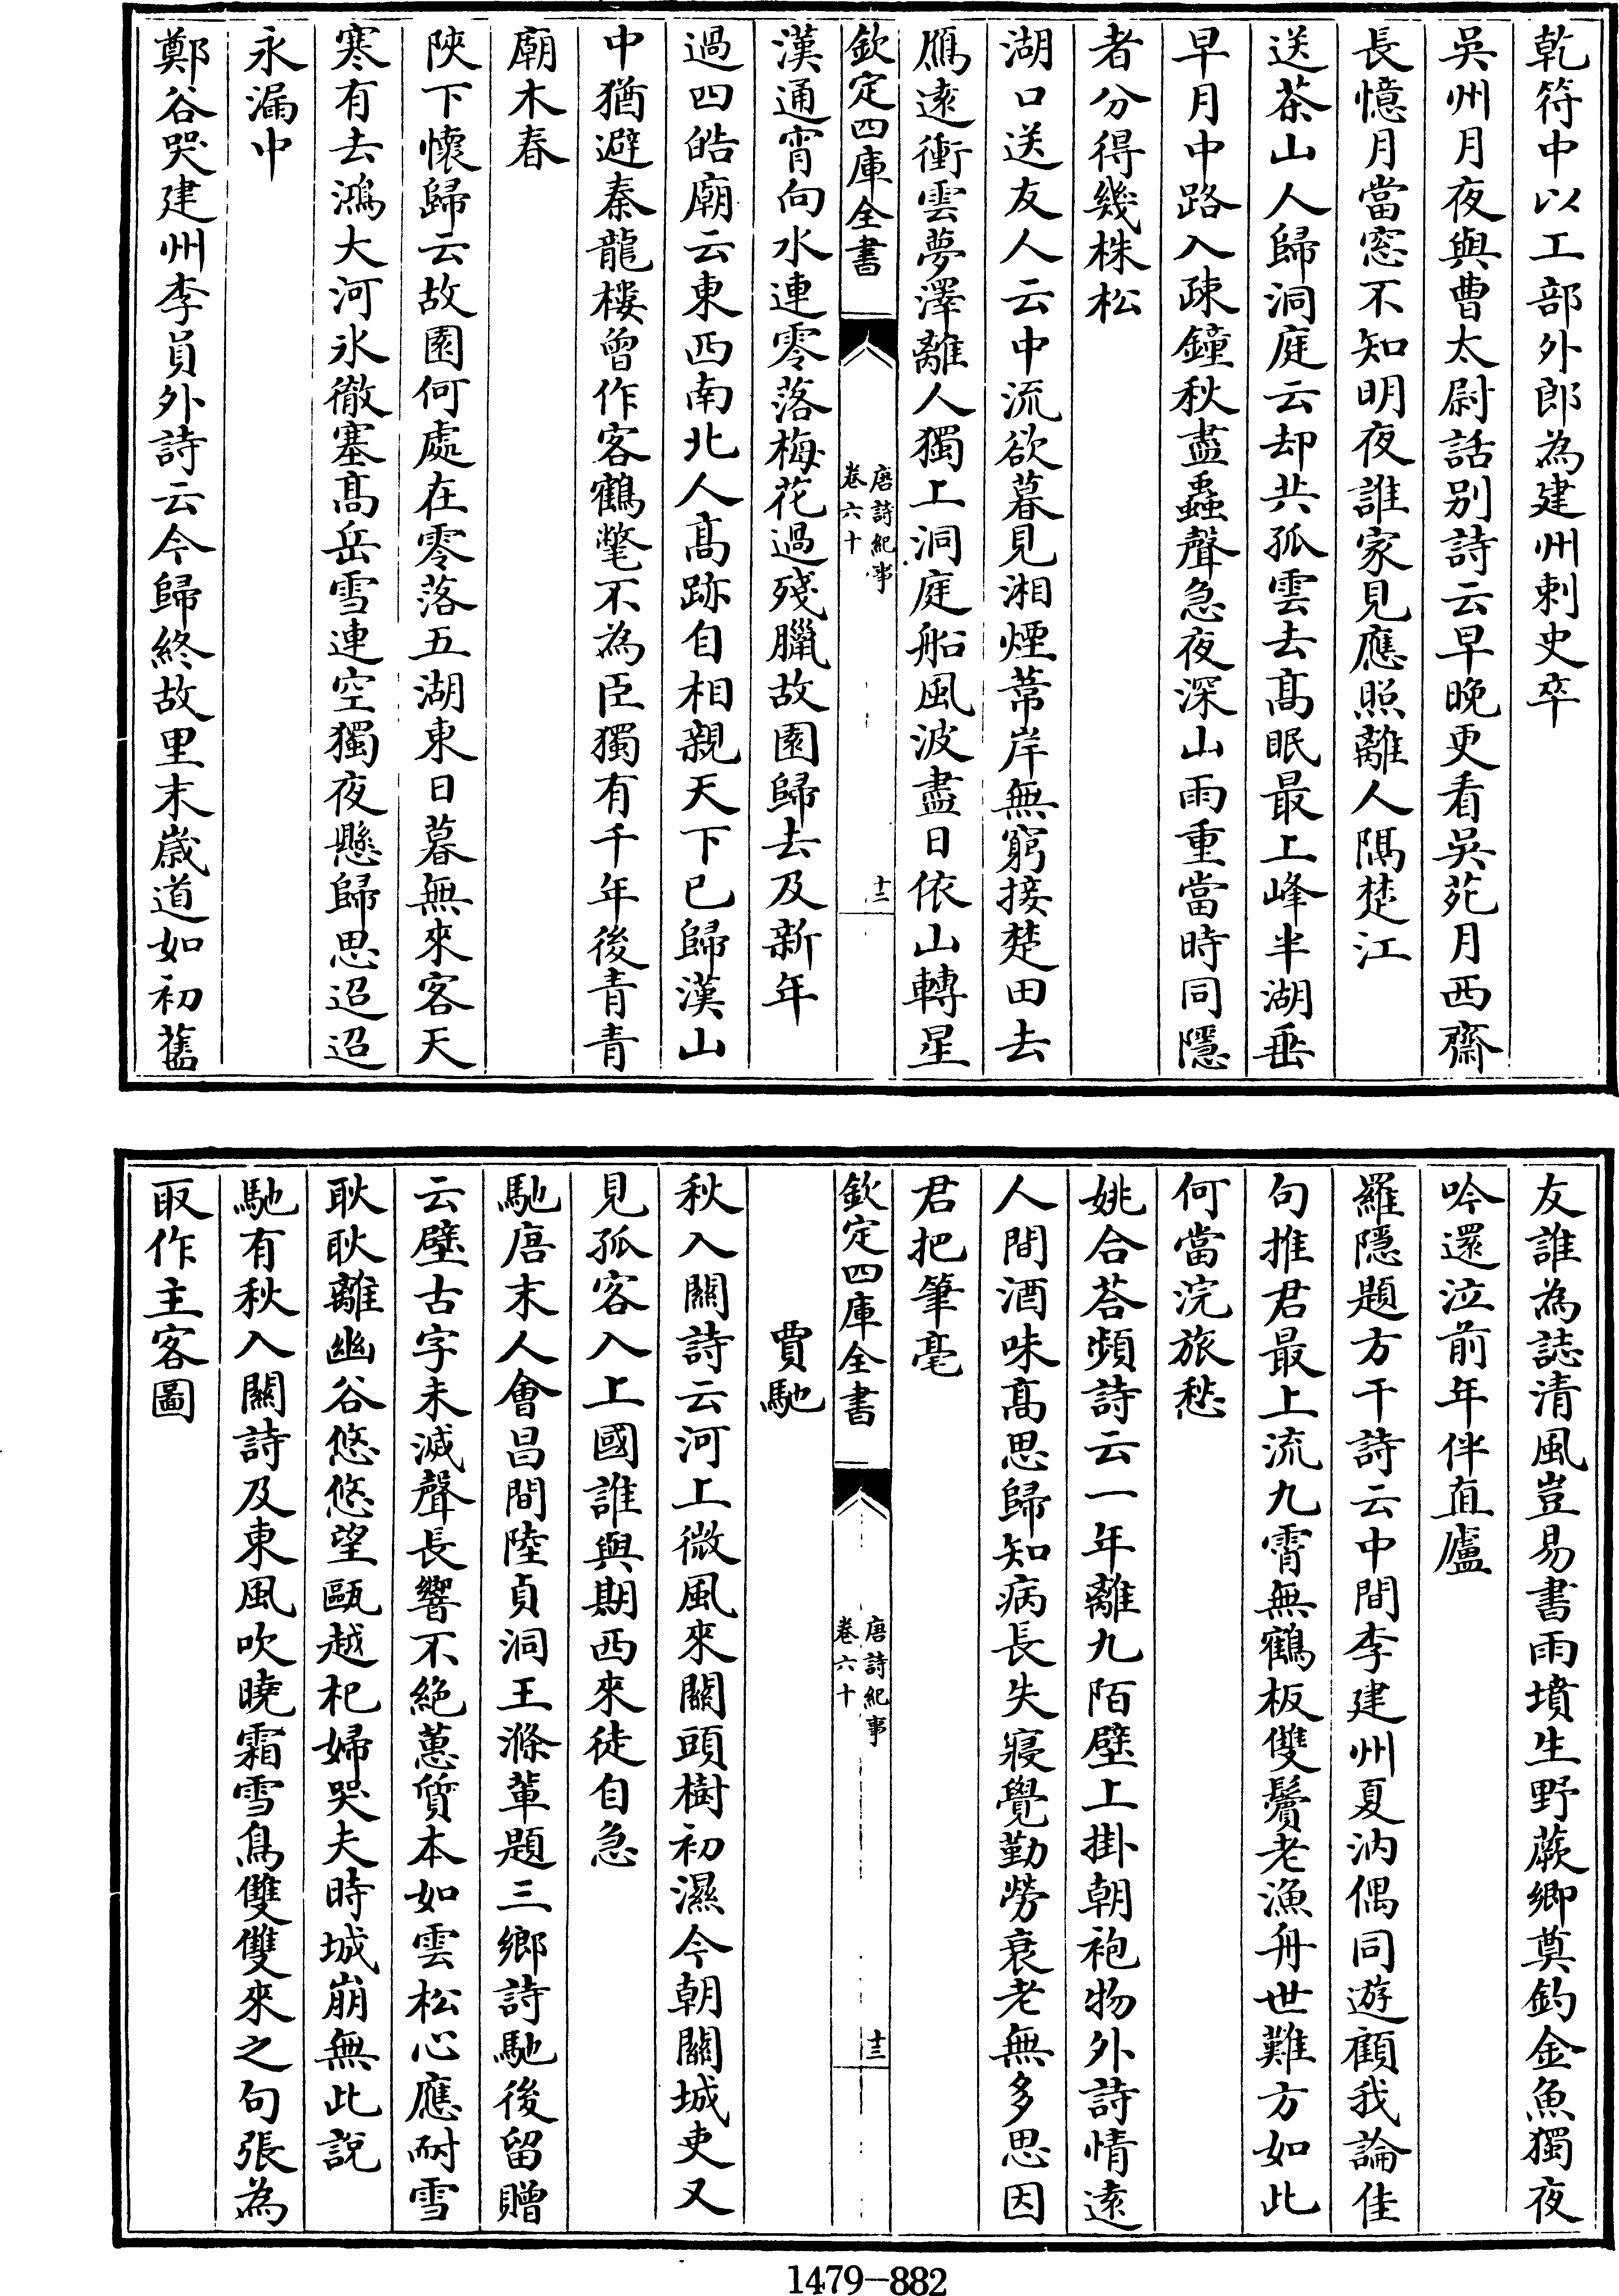 乾符中以工部外郎為建州刺史卒
吳州月夜與曹太尉話別詩云早晚更看吳苑月西齋
長憶月當窓不知明夜誰家見應照離人隔楚江
送茶山人歸洞庭云却共孤雲去髙眠最上峰半湖垂
早月中路入疎鐘秋盡蟲聲急夜深山雨重當時同隱
者分得幾株松
湖口送友人云中流欲暮見湘煙葦岸無窮接楚田去
鴈逺衝雲夢澤離人獨上洞庭船風波盡日依山轉星
欽定四庫全書
唐詩紀事
卷六十
十二
漢通宵向水連零落梅花過殘臘故園歸去及新年
過四皓廟云東西南北人髙跡自相親天下已歸漢山
中猶避秦龍樓曾作客鶴氅不為臣獨有千年後青青
廟木春
陝下懷歸云故園何處在零落五湖東日暮無來客天
寒有去鴻大河氷徹塞髙岳雪連空獨夜懸歸思迢迢
永漏中
鄭谷哭建州李員外詩云今歸終故里末歲道如初舊
友誰為誌清風豈易書雨墳生野蕨鄉奠釣金魚獨夜
吟還泣前年伴直廬
羅隱題方干詩云中間李建州夏汭偶同遊顧我論佳
句推君最上流九霄無鶴板雙鬢老漁舟世難方如此
何當浣旅愁
姚合荅頻詩云一年離九陌壁上掛朝袍物外詩情逺
人間酒味髙思歸知病長失寢覺勤勞衰老無多思因
君把筆毫
欽定四庫全書
唐詩紀事
卷六十
十三
賈馳
秋入關詩云河上微風來關頭樹初濕今朝關城吏又
見孤客入上國誰與期西來徒自急
馳唐末人會昌間陸貞洞王滌軰題三鄉詩馳後留贈
云壁古字未滅聲長響不絶蕙質本如雲松心應耐雪
耿耿離幽谷悠悠望甌越杞婦哭夫時城崩無此說
馳有秋入關詩及東風吹曉霜雪鳥雙雙來之句張為
取作主客圖
1479—882